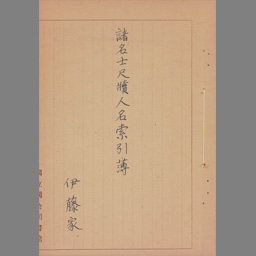 諸名士尺牘人名索引簿
伊藤家